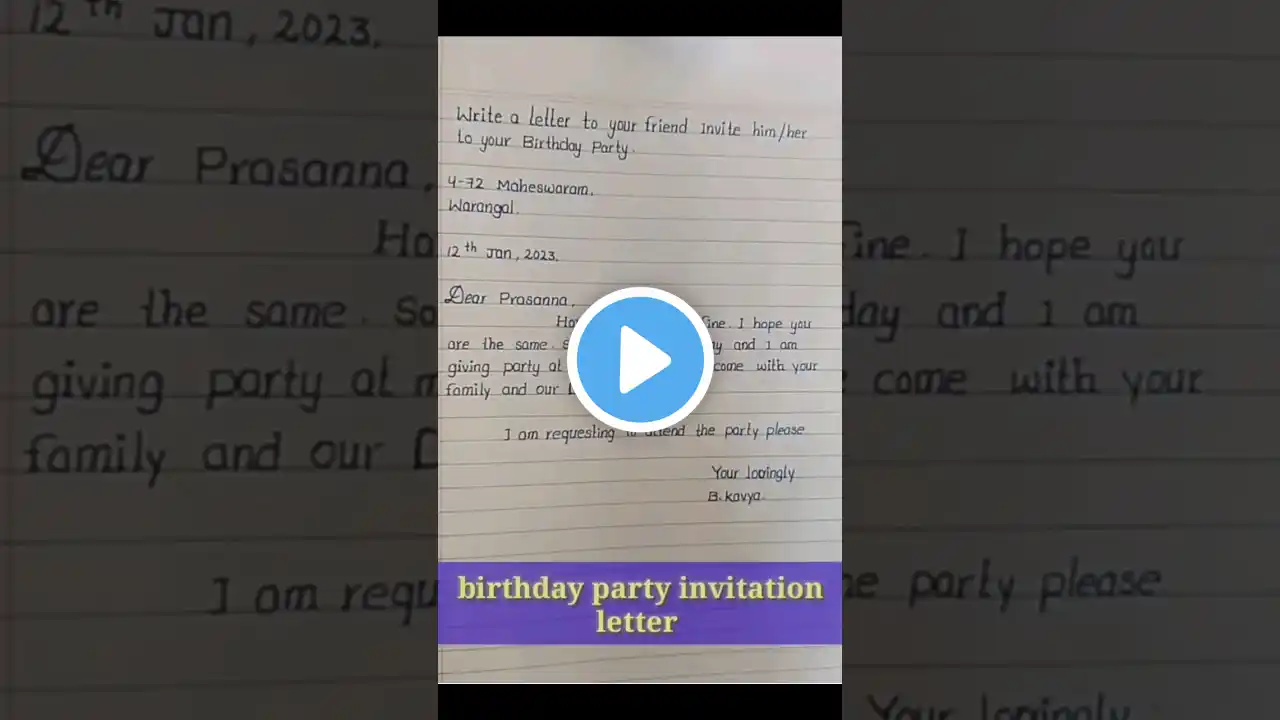 Write a letter to your friend Invite him/her
to your Birthday Party.
4-72 Maheswaram.
Warangal.
12th Jan, 2023.
Dear Prasanna,
I hope you
are the same. and I am
giving party at come with your
family and our
I am requesting to attend the party please
Your lovingly
B. Kavya.
birthday party invitation
letter